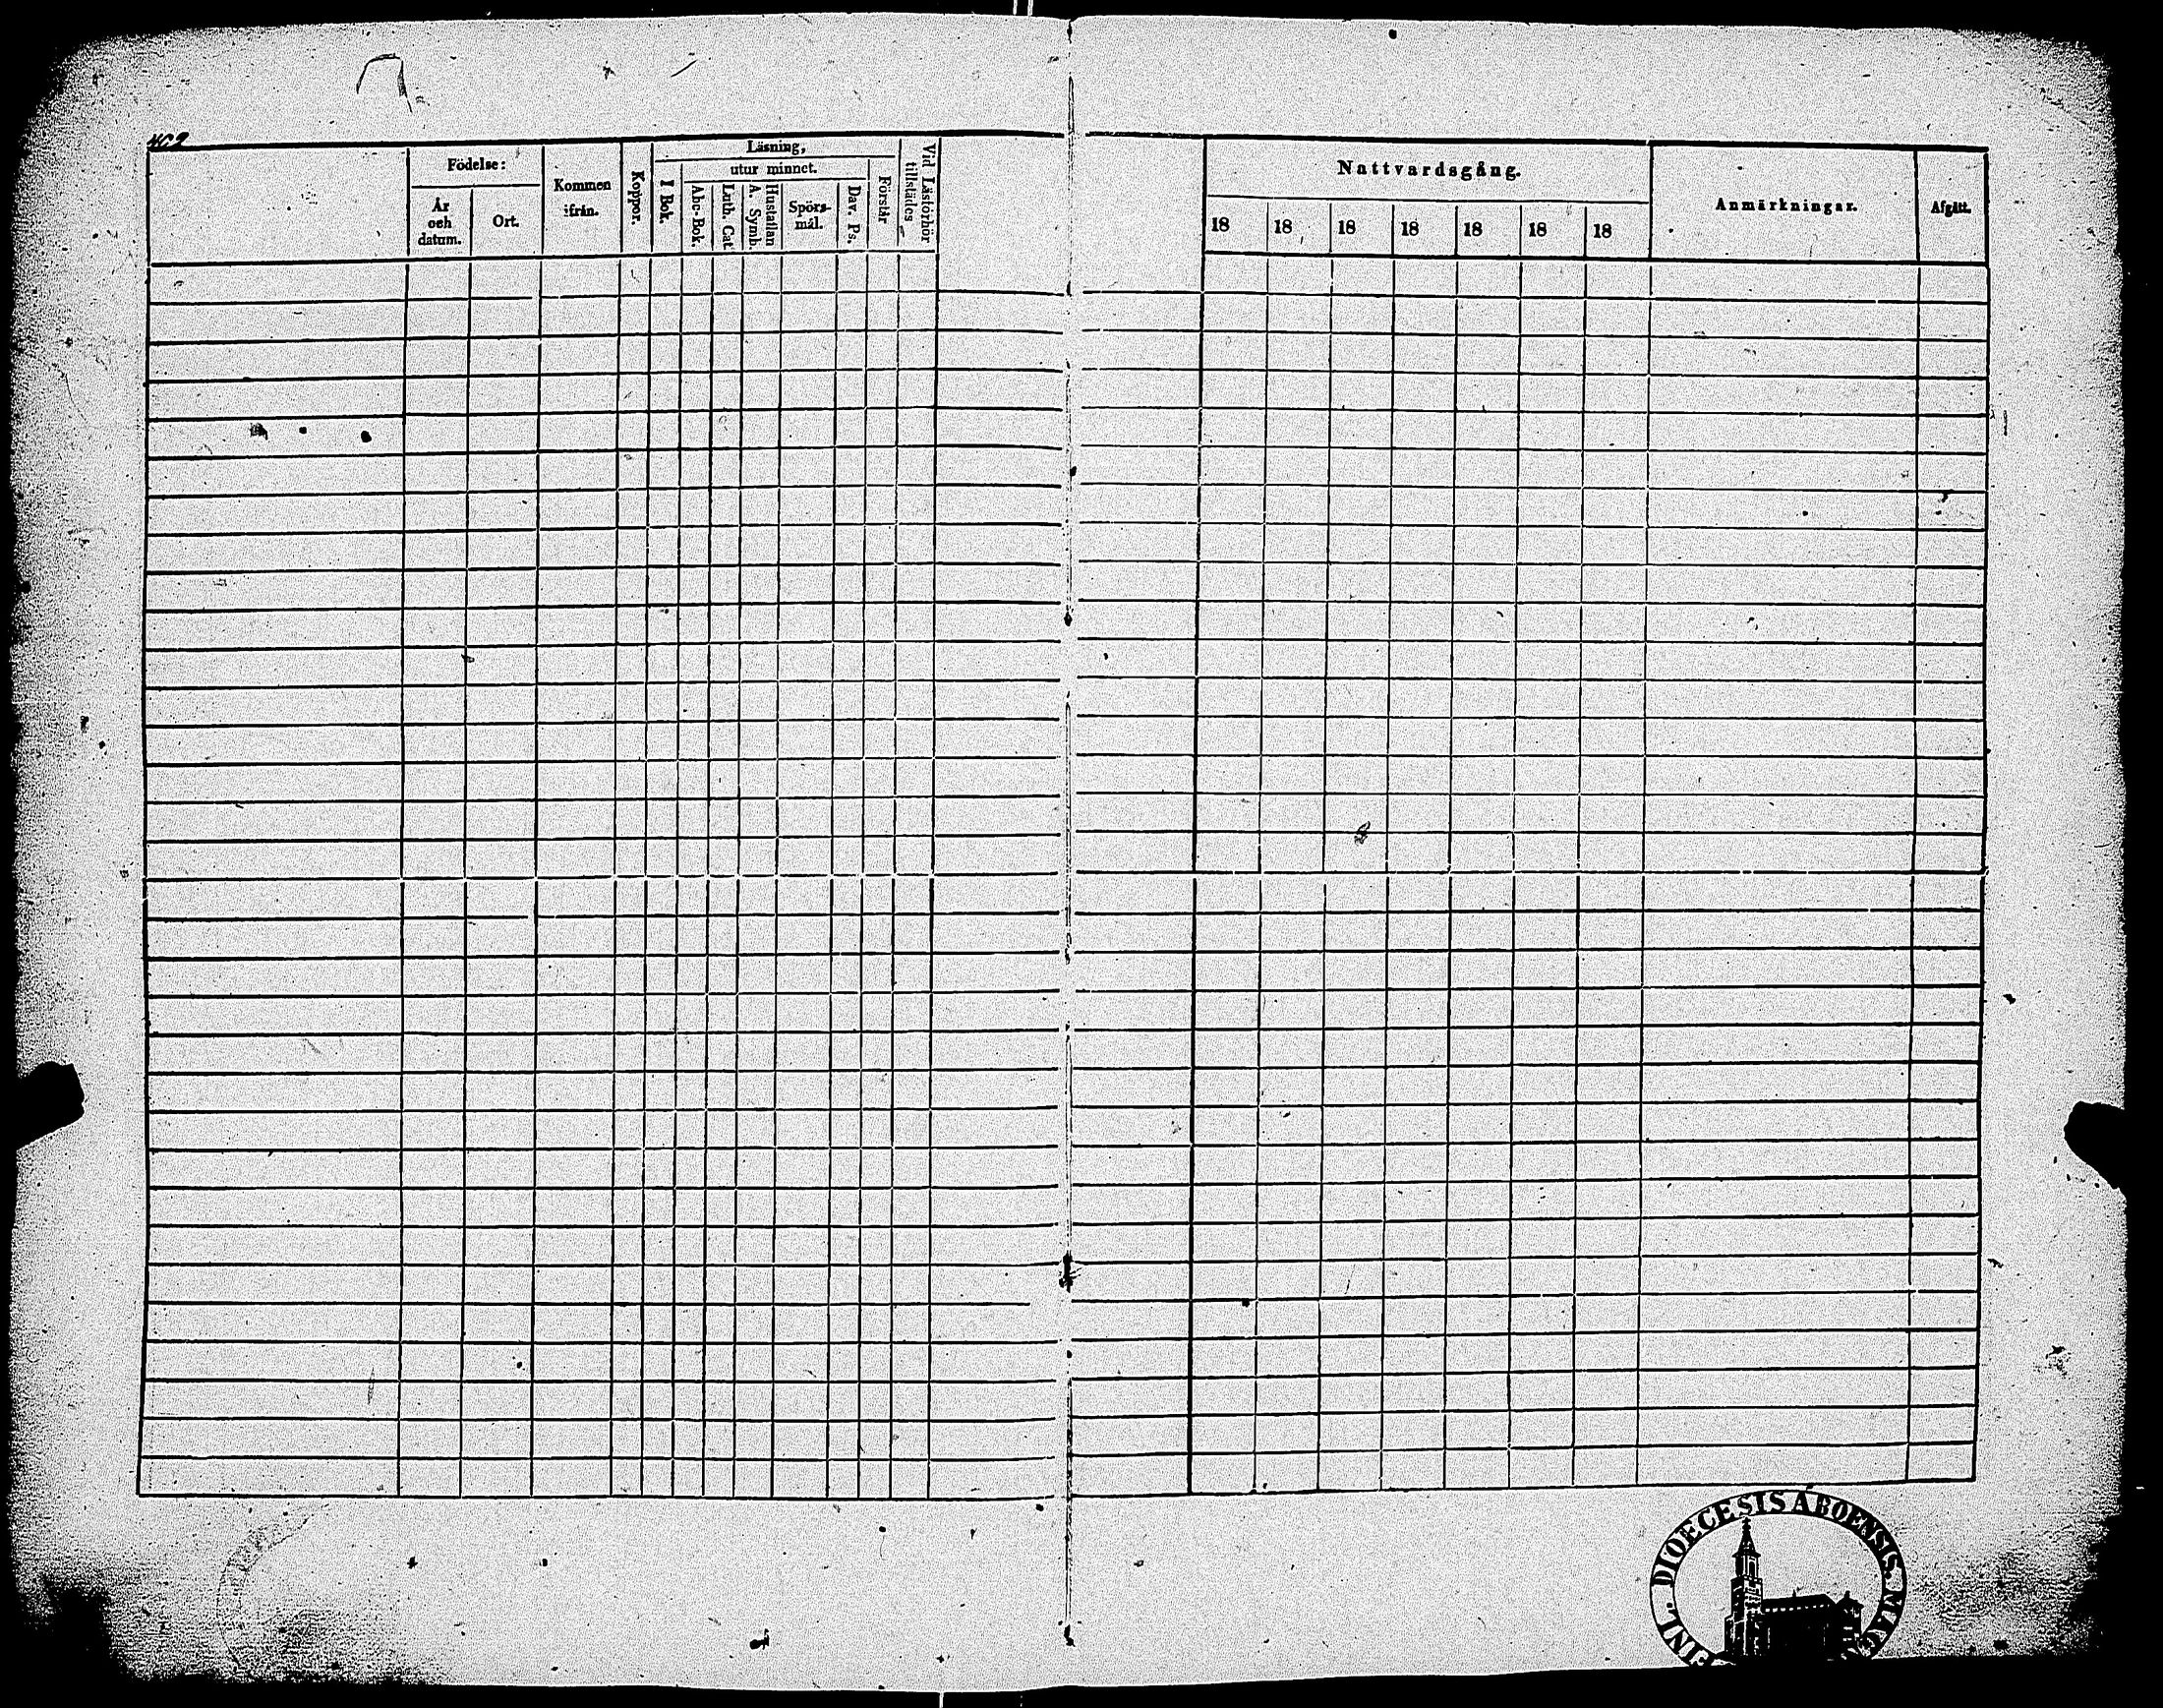 Födelse:
År och datum.
Ort.
Kommen ifrån.
Koppor.
Läsning,
I Bok.
utur minnet.
Abc-Bok.
Luth. Cat.
Hustaflan
A. Symb.
Spörsmål.
Dav. Ps.
Förstår
Vid Läsförhör
tillstädes
Nattvardsgång.
18 18 18 18 18 18 18
Anmärkningar.
Afgått.
DIOECESIS ABOENSIS. MAG
FINL.